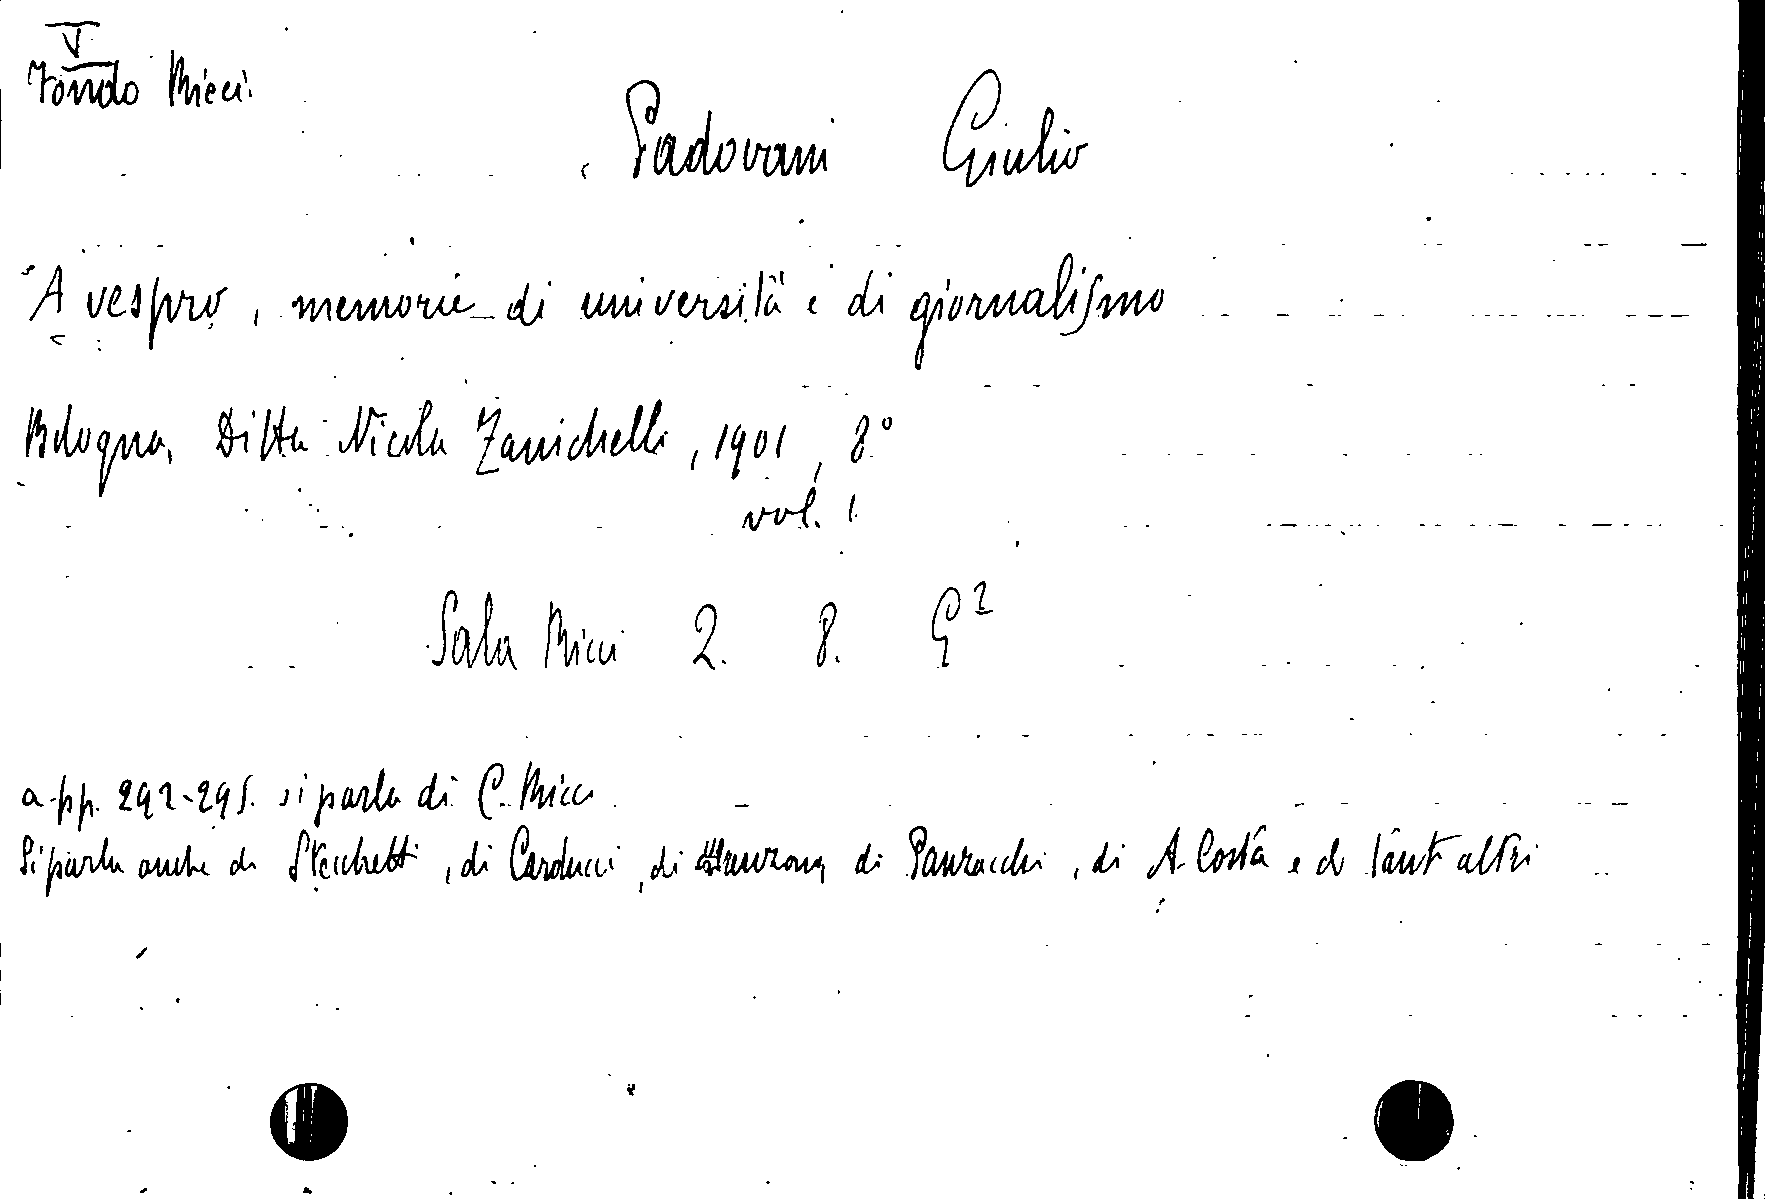 V
Fondo Ricci.
Padovani Giulio
A vespro, memorie di università e di giornalismo
Bologna, Ditta Nicola Zanichelli, 1901, 8°
vol. 1
Sala Ricci 2. 8. G²
a pp. 292-295. si parla di C. Ricci
Si parla anche di Stecchetti, di Carducci, di di Panzacchi, di A. Costa e di tanti altri